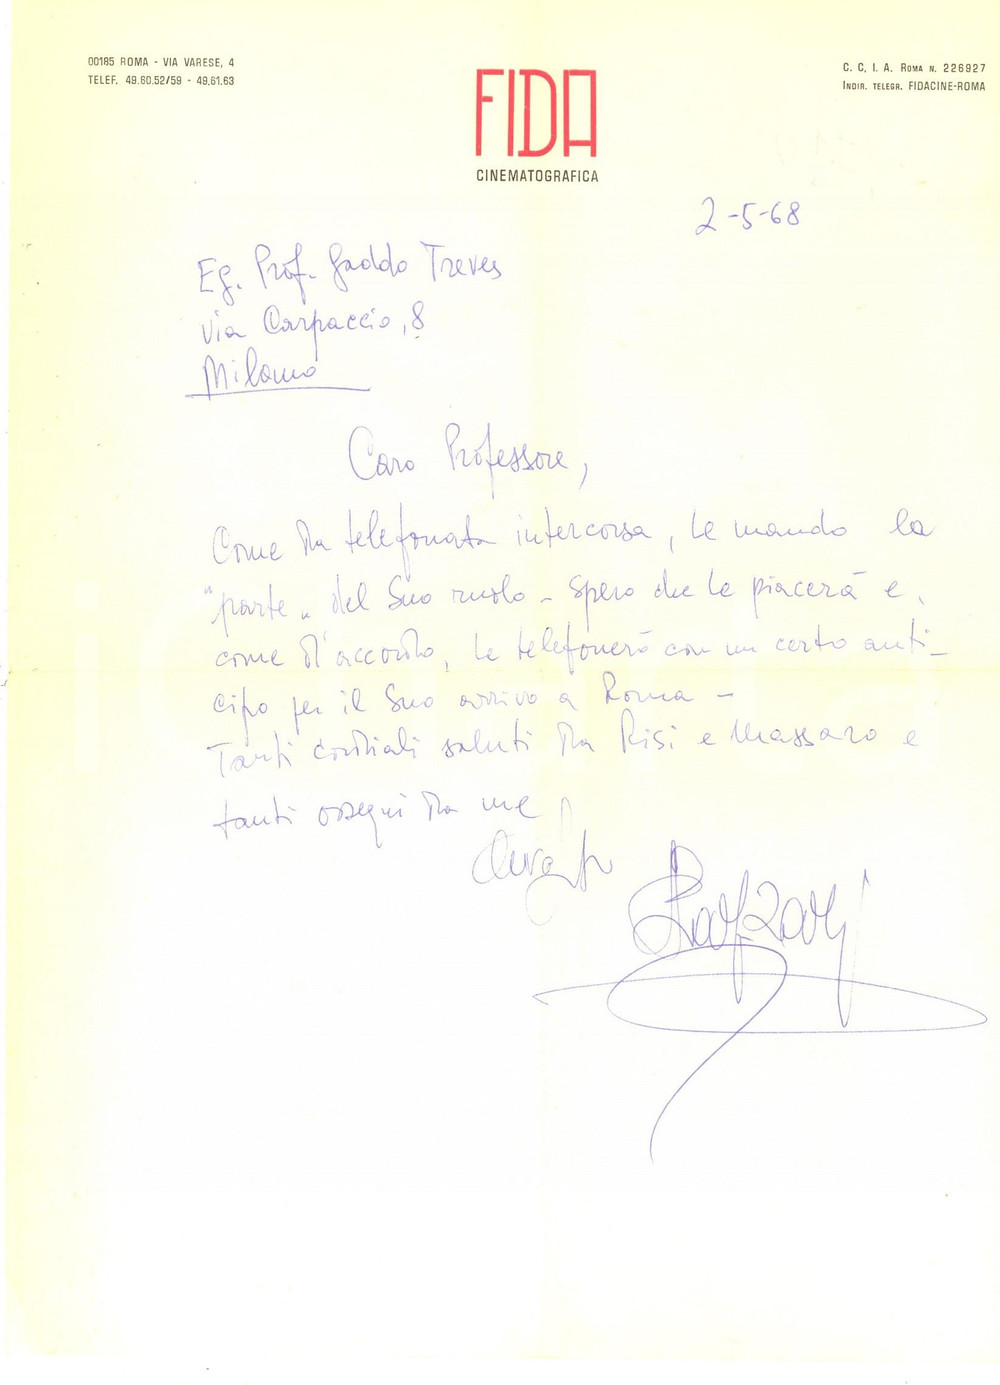 00185 ROMA - VIA VARESE, 4
TELEF. 49.60.52/59 - 49.61.63
C. C. I. A. ROMA N. 226927
INDIR. TELEGR. FIDACINE-ROMA
FIDA
CINEMATOGRAFICA
2-5-68
Eg. Prof. Gaddo Treves
via Carpaccio, 8
Milano
Caro Professore,
Come da telefonata intercorsa, Le mando la
"parte" del Suo ruolo - spero che Le piacerà e,
come d'accordo, Le telefonerò con un certo anti-
cipo per il Suo arrivo a Roma -
Tanti cordiali saluti da Risi e Massaro e
tanti ossequi da me